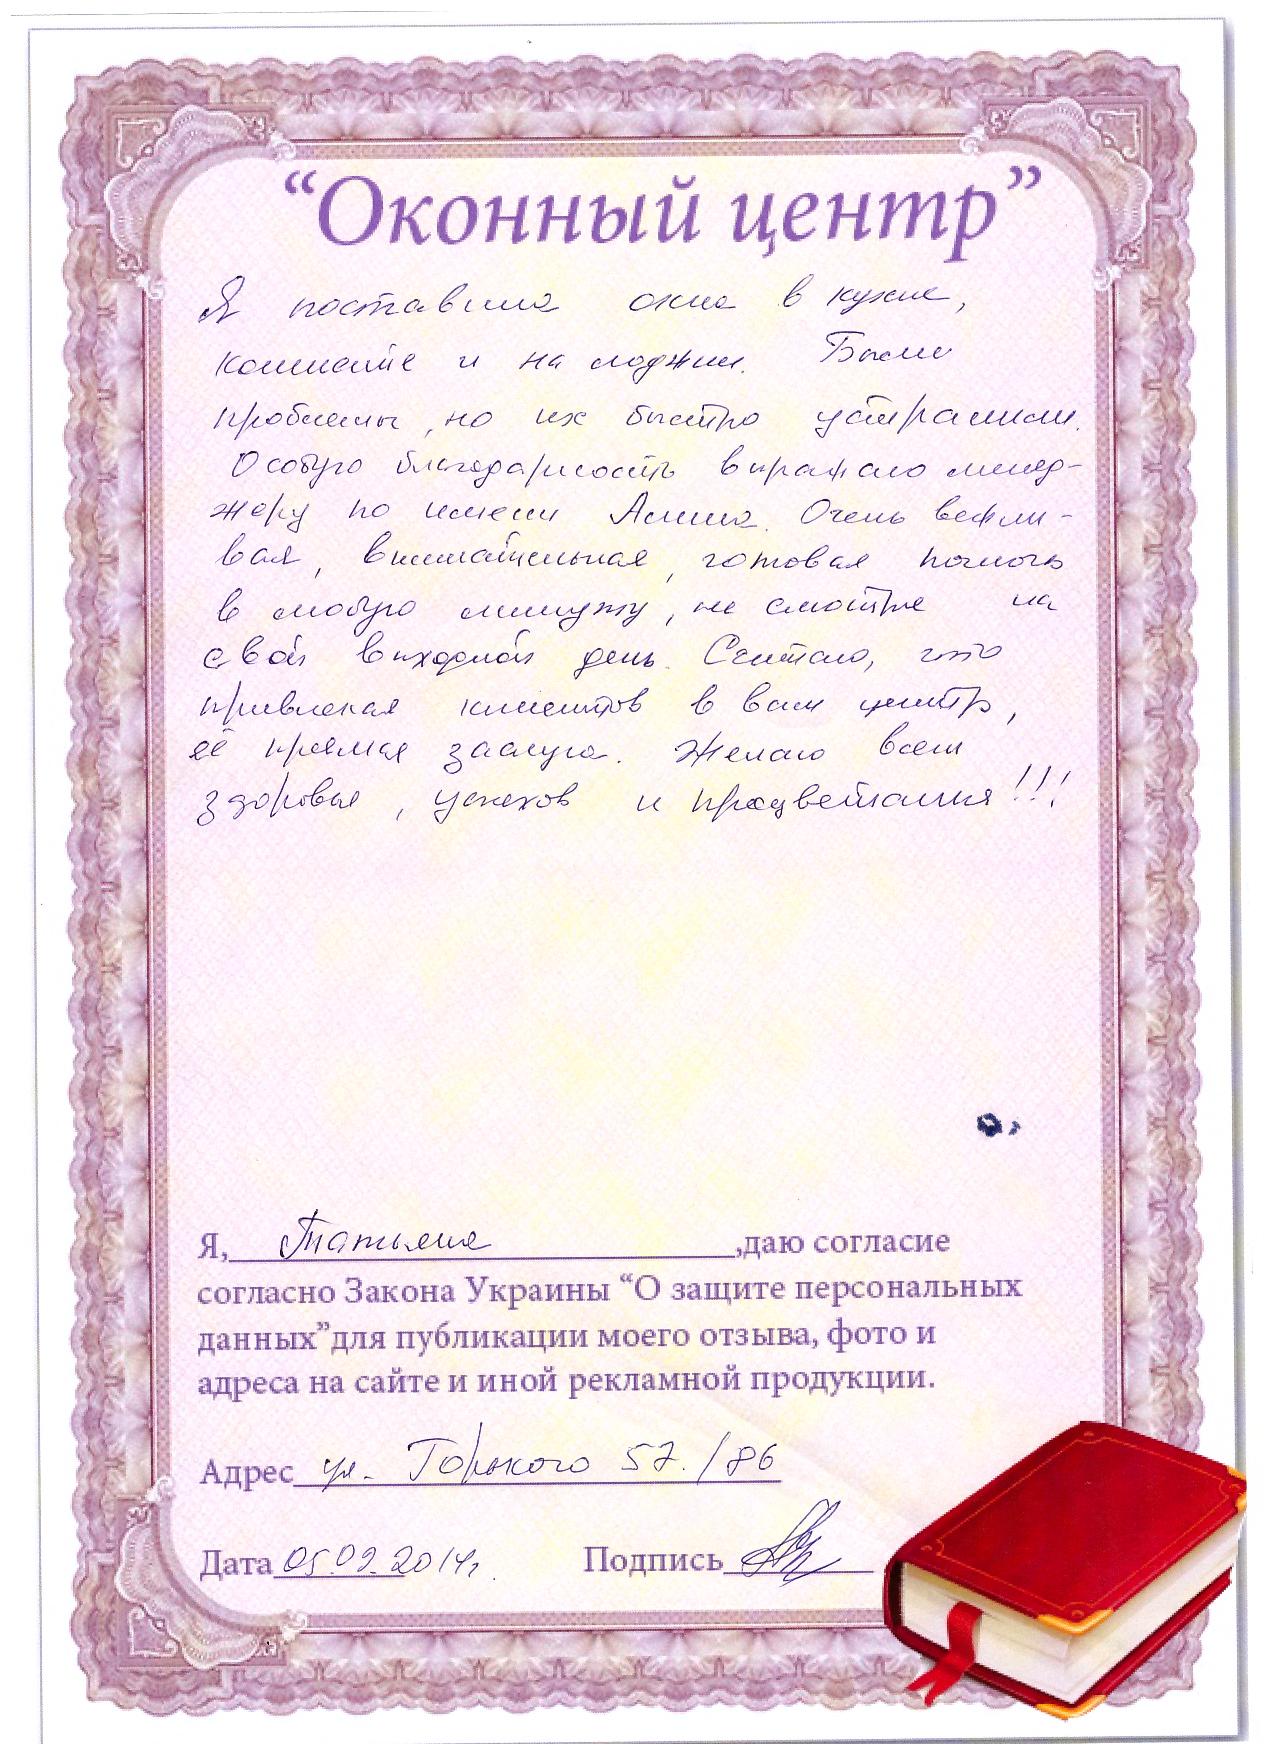 “Оконный центр”
Я поставила окна в кухне,
комнате и на лоджии. Были
проблемы, но их быстро устранили.
Особую благодарность выражаю менед-
жеру по имени Алина. Очень вежли-
вая, внимательная, готовая помочь
в любую минуту, не смотря на
свой выходной день. Считаю, что
привлекая клиентов в ваш центр,
её прямая заслуга. Желаю всем
здоровья, успехов и процветания!!!
Я, Татьяна ,даю согласие
согласно Закона Украины “О защите персональных
данных”для публикации моего отзыва, фото и
адреса на сайте и иной рекламной продукции.
Адрес ул. Горького 57./86
Дата 05.09.2014г. Подпись